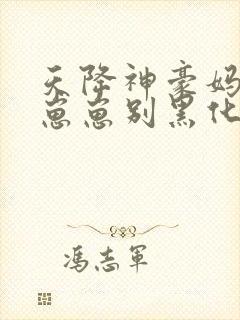 天降神豪妈
崽崽别黑化
冯志军